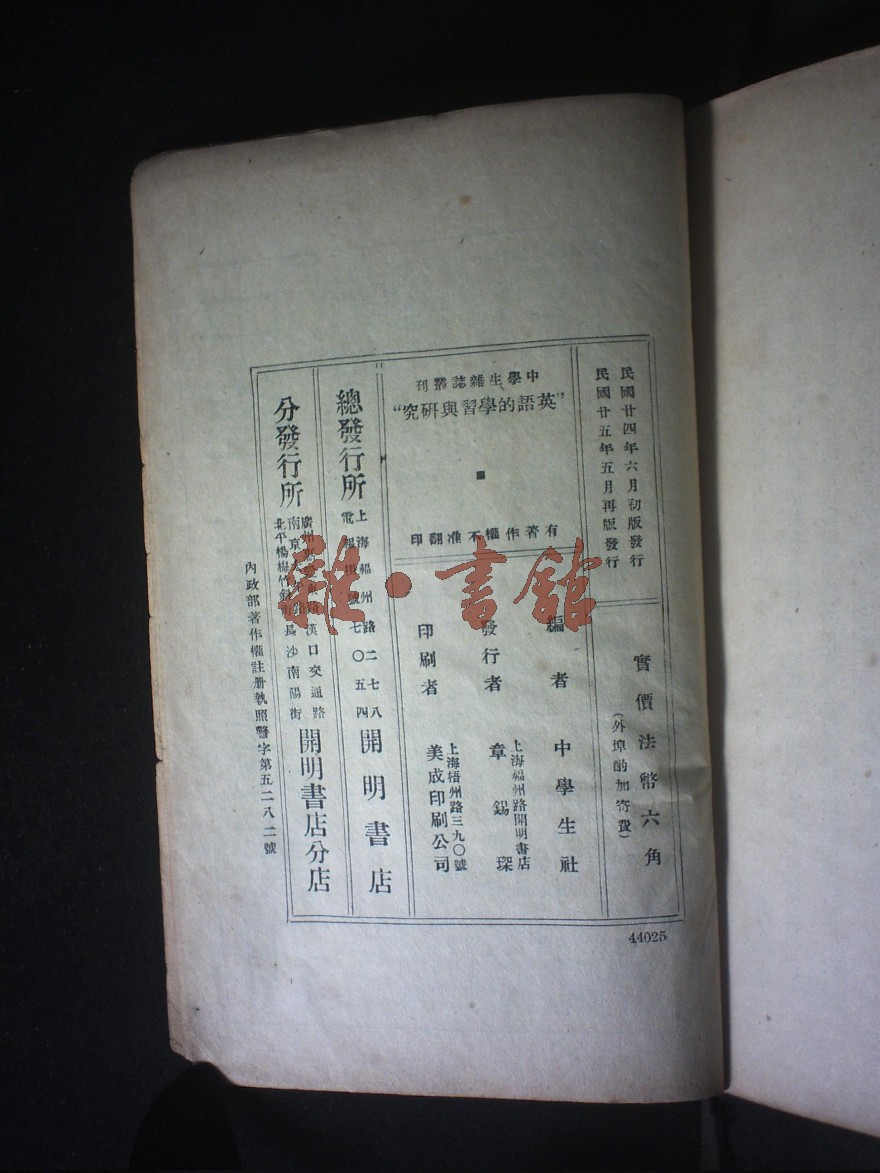 民國廿四年六月初版發行
民國廿五年五月再版發行
實價法幣六角
（外埠酌加寄費）
中學生雜誌叢刊
“英語的學習與硏究”
有著作權不准翻印
編者 中學生社
發行者
上海福州路開明書店
章錫琛
印刷者
上海梧州路三九〇號
美成印刷公司
總發行所
上海福州路二七八
電報掛號七〇五四
開明書店
分發行所
廣州 漢口交通路
南京 長沙南陽街
北平楊梅竹斜街
開明書店分店
內政部著作權註册執照警字第五二八二號
44025
雜·書館